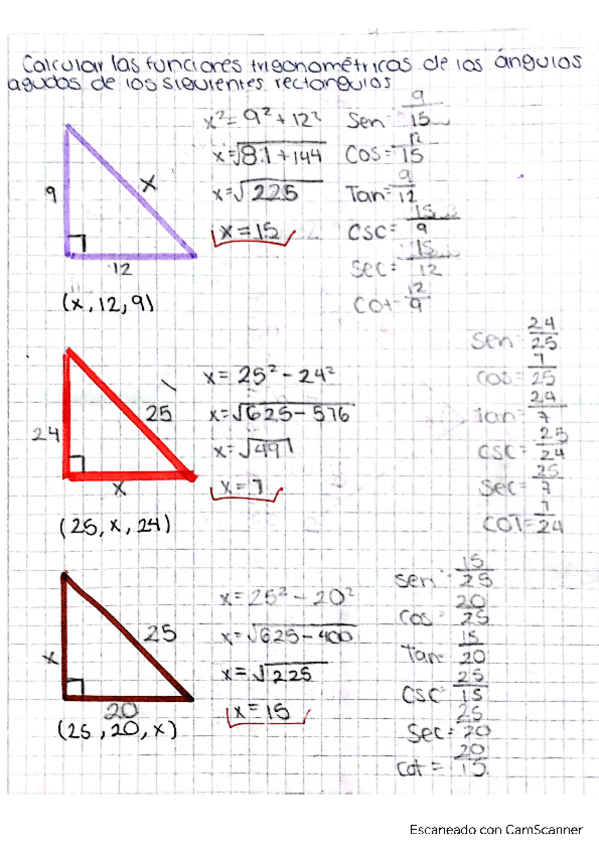 Calcular las funciones trigonométricas de los ángulos
agudos de los siguientes rectangulos
9
x
12
(x, 12, 9)
x² = 9² + 12²
x = √81 + 144
x = √225
x = 15
Sen = 9/15
Cos = 12/15
Tan = 9/12
Csc = 15/9
Sec = 15/12
Cot = 12/9
24
25
x
(25, x, 24)
x = 25² - 24²
x = √625 - 576
x = √49
x = 7
Sen = 24/25
Cos = 7/25
Tan = 24/7
CSC = 25/24
Sec = 25/7
COT = 7/24
x
25
20
(25, 20, x)
x = 25² - 20²
x = √625 - 400
x = √225
x = 15
Sen = 15/25
Cos = 20/25
Tan = 15/20
CSC = 25/15
Sec = 25/20
Cot = 20/15
Escaneado con CamScanner